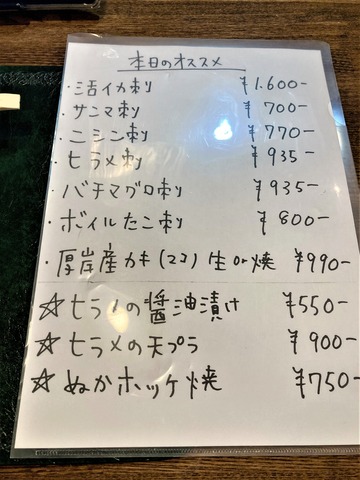 本日のオススメ
・活イカ刺 ¥1.600-
・サンマ刺 ¥700-
・ニシン刺 ¥770-
・ヒラメ刺 ¥935-
・バチマグロ刺 ¥935-
・ボイルたこ刺 ¥800-
・厚岸産カキ(2コ)生or焼 ¥990-
☆ヒラメの醤油漬け ¥550-
☆ヒラメの天プラ ¥900-
☆ぬかホッケ焼 ¥750-